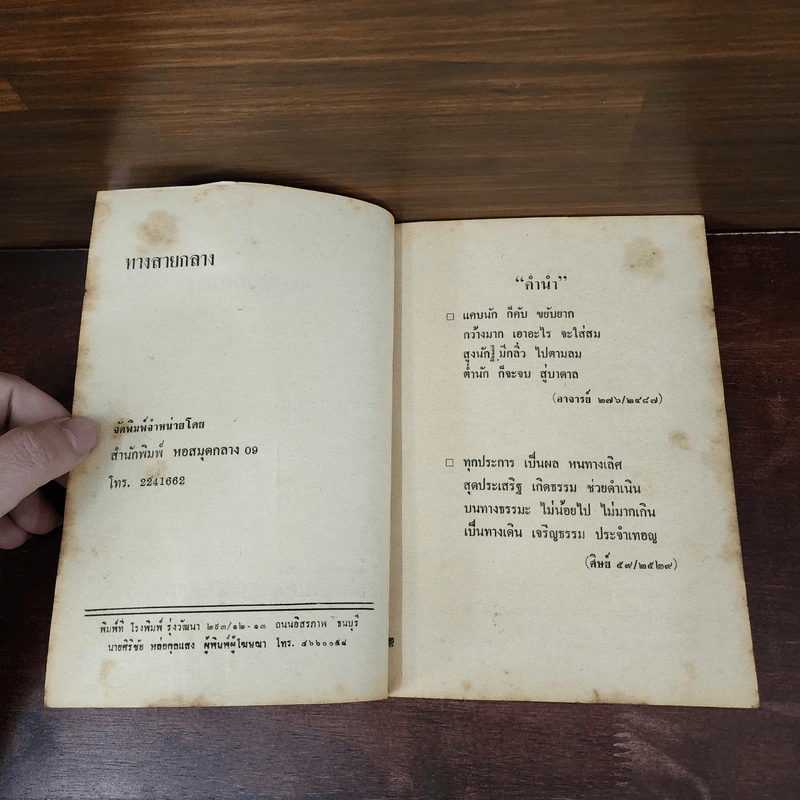 ทางสายกลาง
จัดพิมพ์จำหน่ายโดย
สำนักพิมพ์ หอสมุดกลาง 09
โทร. 2241662
พิมพ์ที่ โรงพิมพ์ รุ่งวัฒนา ๒๙๓/๑๒-๑๓ ถนนอิสรภาพ ธนบุรี
นายศิริชัย หล่อกุลแสง ผู้พิมพ์ผู้โฆษณา โทร. ๔๖๖๐๐๕๔
“คำนำ”
□ แคบนัก ก็คับ ขยับยาก
กว้างมาก เอาอะไร จะใส่สม
สูงนัก มักลิ่ว ไปตามลม
ต่ำนัก ก็จะจบ สู่บาดาล
(อาจารย์ ๒๗๖/๒๔๘๗)
□ ทุกประการ เป็นผล หนทางเลิศ
สุดประเสริฐ เกิดธรรม ช่วยดำเนิน
บนทางธรรมะ ไม่น้อยไป ไม่มากเกิน
เป็นทางเดิน เจริญธรรม ประจำเทอญ
(ศิษย์ ๕๙/๒๕๒๙)